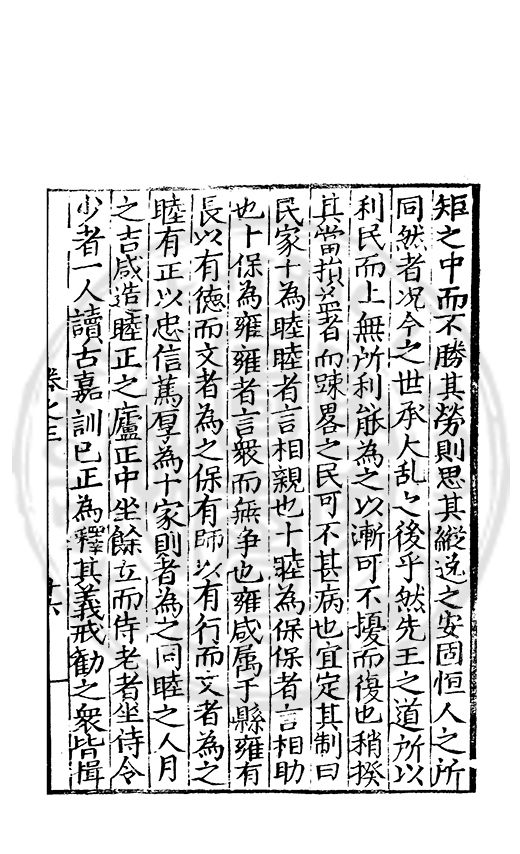 矩之中而不勝其勞則思其縱逸之安固恒人之所
同然者况今之世承大乱之後乎然先王之道所以
利民而上無所利能為之以漸可不擾而復也稍揆
其當損益者而踈畧之民可不甚病也宜定其制曰
民家十為睦睦者言相親也十睦為保保者言相助
也十保為雍雍者言衆而無争也雍咸属于縣雍有
長以有德而文者為之保有師以有行而文者為之
睦有正以忠信篤厚為十家則者為之同睦之人月
之吉咸造睦正之廬正中坐餘立而侍老者坐侍令
少者一人讀古嘉訓已正為釋其義戒勸之衆皆揖
卷之三
十六